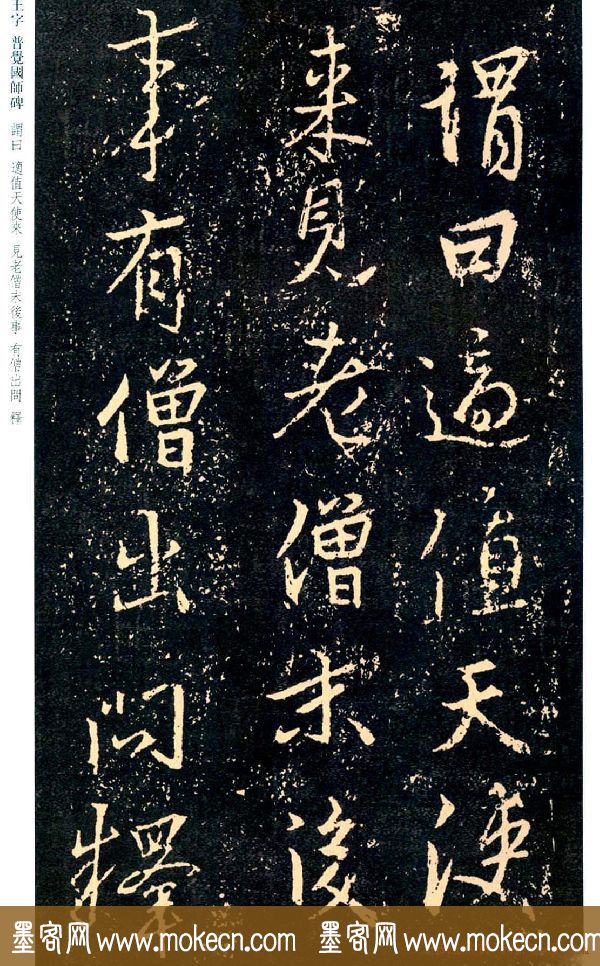 謂曰適值天使
来見老僧末後
事有僧出問釋
王字 普覺國師碑 謂曰 適值天使來 見老僧末後事 有僧出問 釋
墨客网 www.mokecn.com 墨客网 www.mokecn.com